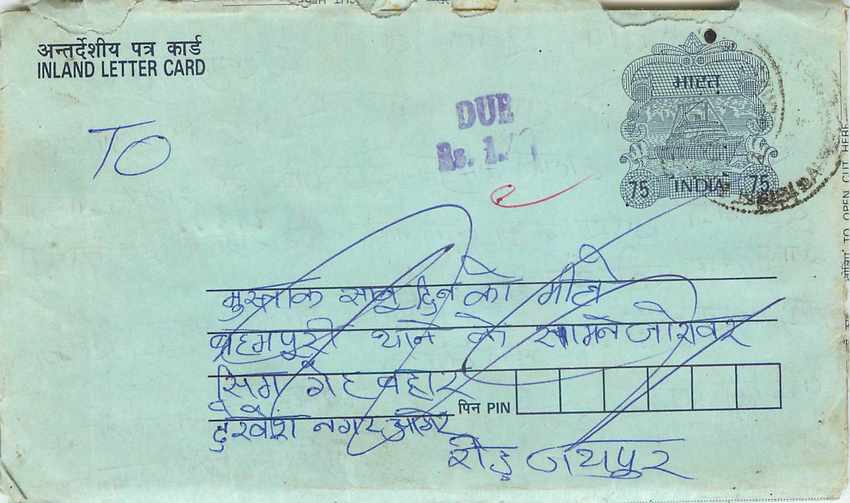 अन्तर्देशीय पत्र कार्ड
INLAND LETTER CARD
भारत
DUE
Rs. 1.
TO
75 INDIA 75
TO OPEN CUT HERE
मुस्ताक साबू दिन को मीले
ब्रहमपुरी थाने के सामने जोरावर
सिग गेट बहार
पिन PIN
नगर आमेर
रोड़ जयपुर